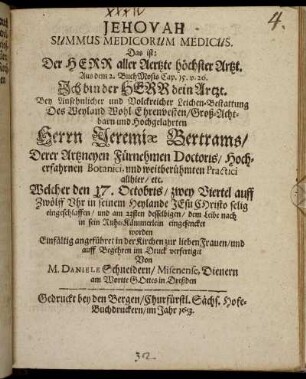 XXXIV
4.
JEHOVAH
SUMMUS MEDICORUM MEDICUS.
Das ist:
Der HERR aller Aertzte höchster Artzt.
Aus dem 2. Buch Mosis Cap. 15. v. 26.
Ich bin der HERR dein Artzt.
Bey Ansehnlicher und Volckreicher Leichen-Bestattung
Des Weyland Wohl-Ehrenvesten/ Groß-Acht-
barn und Hochgelahrten
Herrn Jeremiæ Bertrams/
Derer Artzneyen Fürnehmen Doctoris, Hoch-
erfahrnen Botanici, und weitberühmten Practici
allhier/ etc.
Welcher den 17. Octobris, zwey Viertel auff
Zwölff Uhr in seinem Heylande JEsu CHristo selig
eingeschlaffen/ und am 22sten desselbigen/ dem Leibe nach
in sein Ruhe-Kämmerlein eingesencket
worden
Einfältig angeführet in der Kirchen zur lieben Frauen/ und
auff Begehren im Druck verfertiget
Von
M. DANIELE Schneidern/ Misnense, Dienern
am Worte GOttes in Dreßden
Gedruckt bey den Bergen/ Churfürstl. Sächs. Hoff-
Buchdruckern/ im Jahr
312.